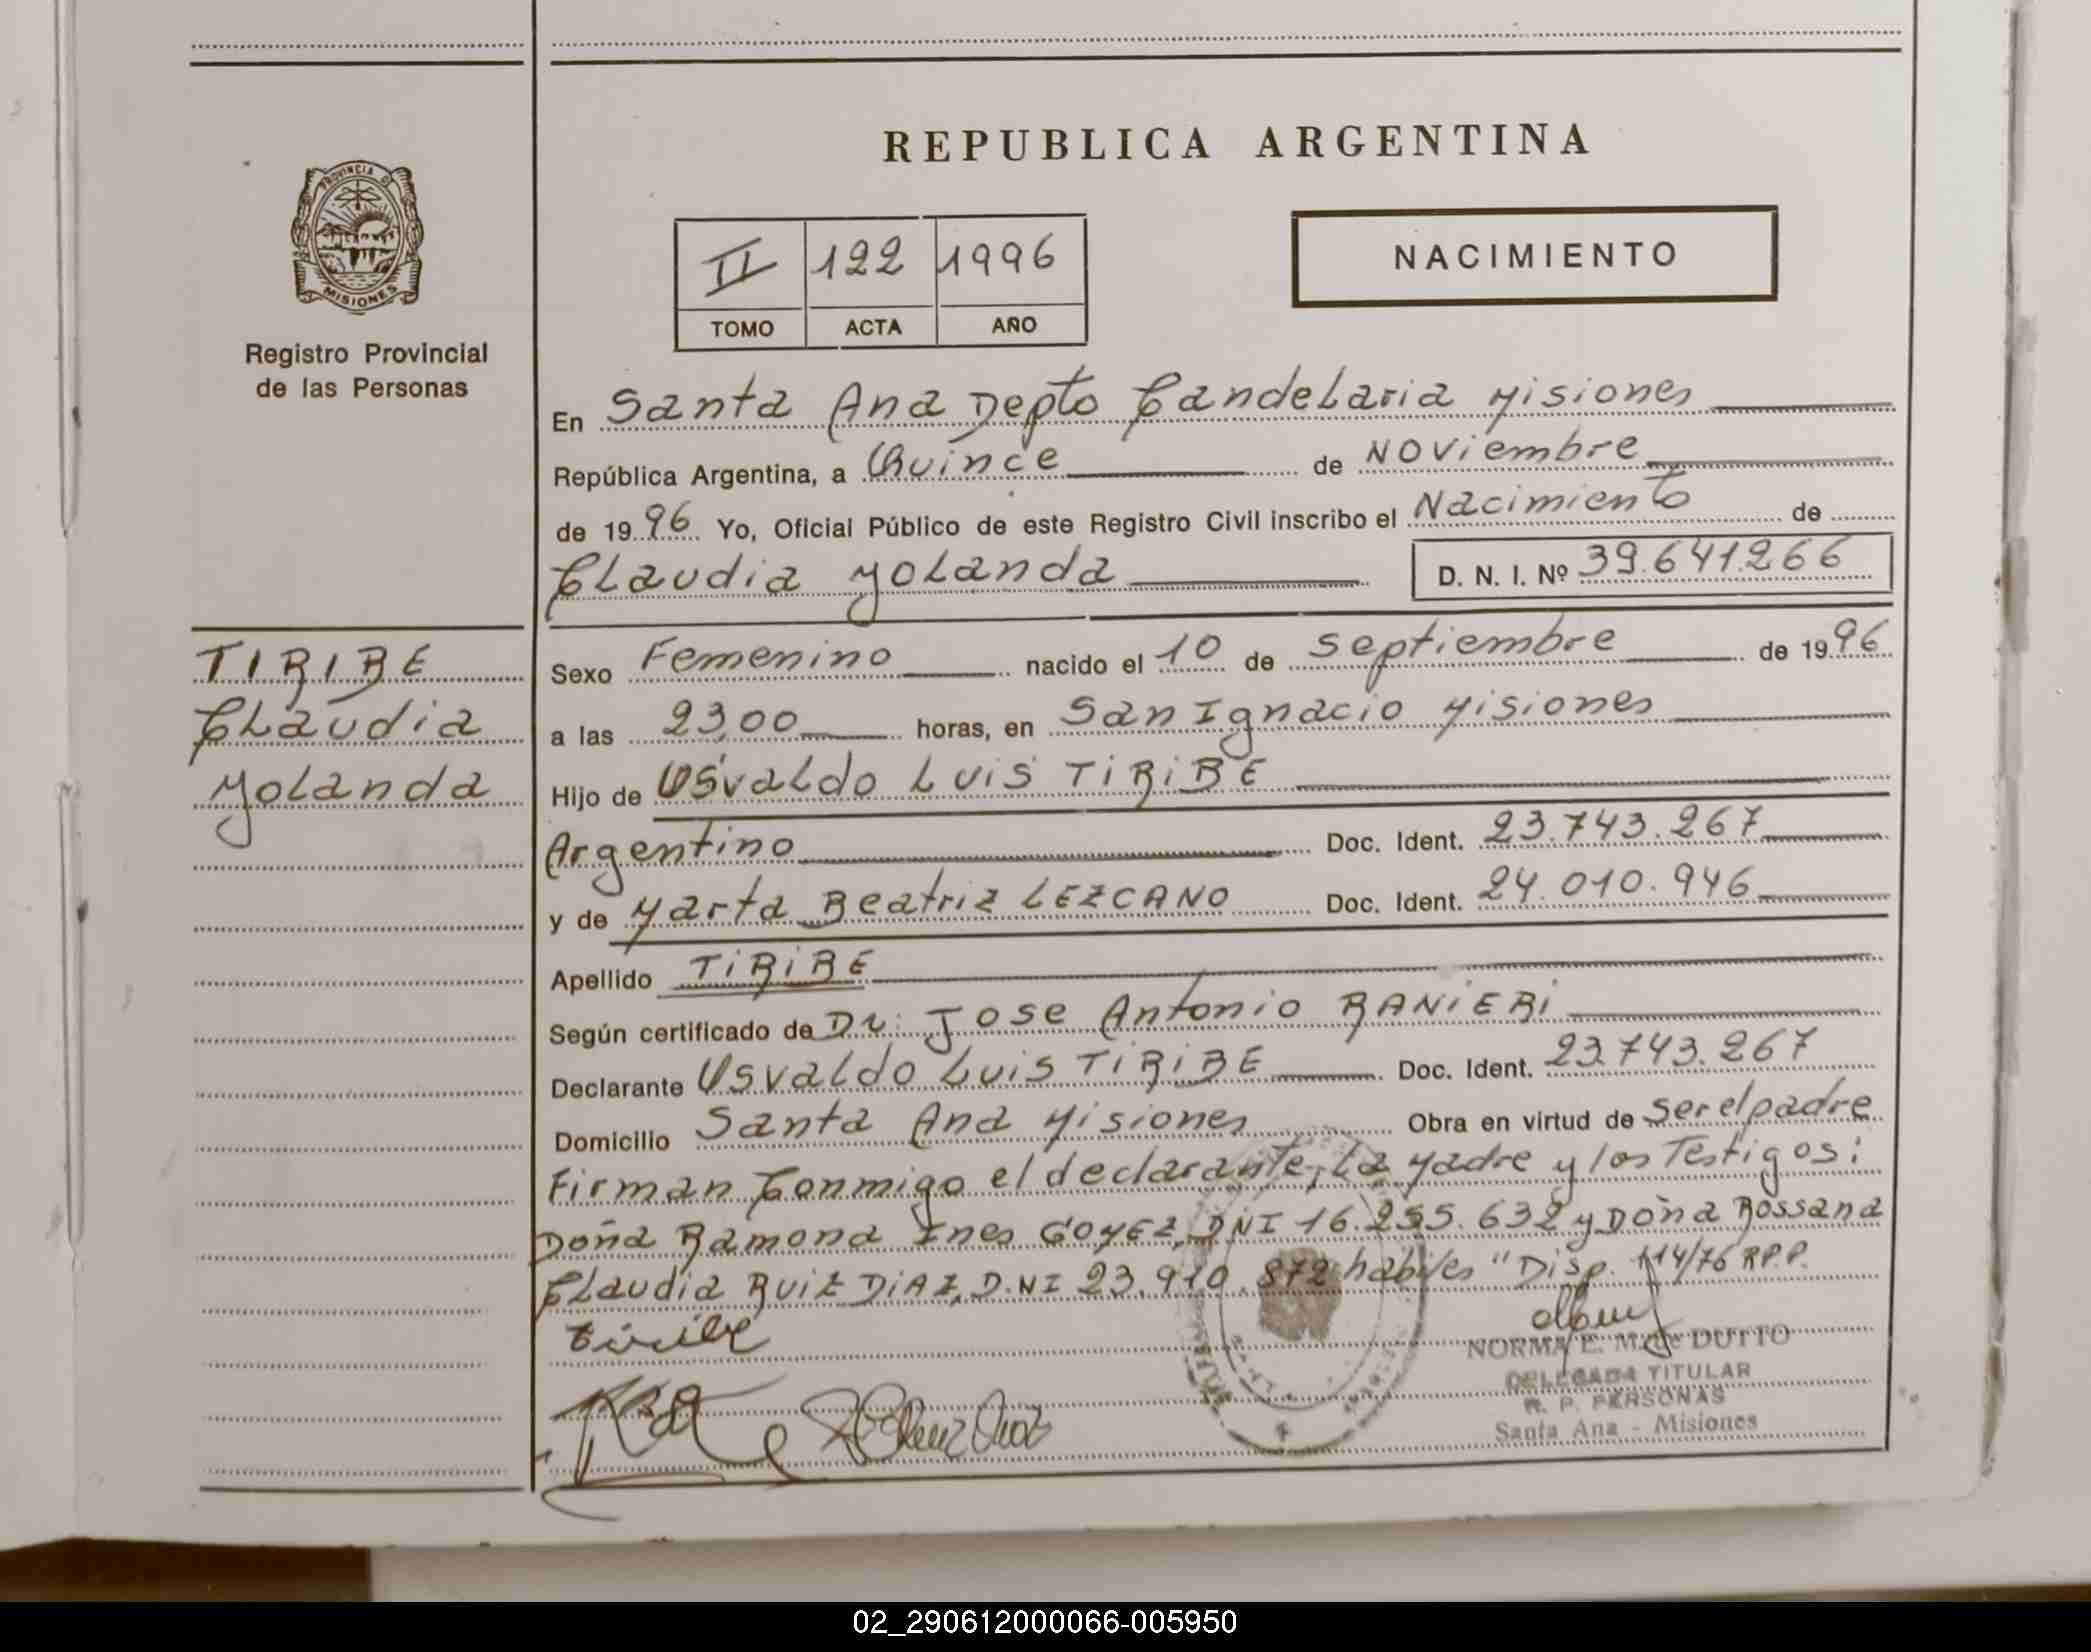 REPUBLICA ARGENTINA
PROVINCIA DE
MISIONES
Registro Provincial
de las Personas
II 122 1996
TOMO ACTA AÑO
NACIMIENTO
En Santa Ana Depto Candelaria Misiones
República Argentina, a Quince de Noviembre
de 1996 Yo, Oficial Público de este Registro Civil inscribo el Nacimiento de
Claudia Yolanda D. N. I. Nº 39.641.266
TIRIBE
Claudia
Yolanda
Sexo Femenino nacido el 10 de Septiembre de 1996
a las 23,00 horas, en San Ignacio Misiones
Hijo de Usvaldo Luis TIRIBE
Argentino Doc. Ident. 23.743.267
y de Marta Beatriz LEZCANO Doc. Ident. 24.010.946
Apellido TIRIBE
Según certificado de Dr: Jose Antonio RANIERI
Declarante Usvaldo Luis TIRIBE Doc. Ident. 23.743.267
Domicilio Santa Ana Misiones Obra en virtud de ser el padre
Firman Conmigo el declarante, la Madre y los Testigos:
Doña Ramona Ines GOMEZ, DNI 16.255.632 y Doña Rossana
Claudia RUIZ DIAZ, D.NI 23.910.872 habiles "Disp. 114/76 R.P.P.
NORMA E. M. de DUTTO
DELEGADA TITULAR
R. P. PERSONAS
Santa Ana - Misiones
02_290612000066-005950